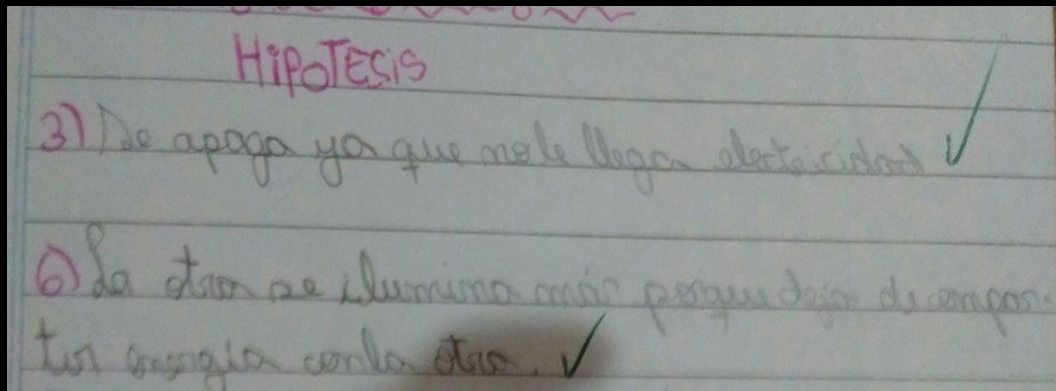 HIPOTESIS
3) Se apaga ya que no le llega electricidad
6) La otra se ilumina más porque deja de compar-
tir energía con la otra.